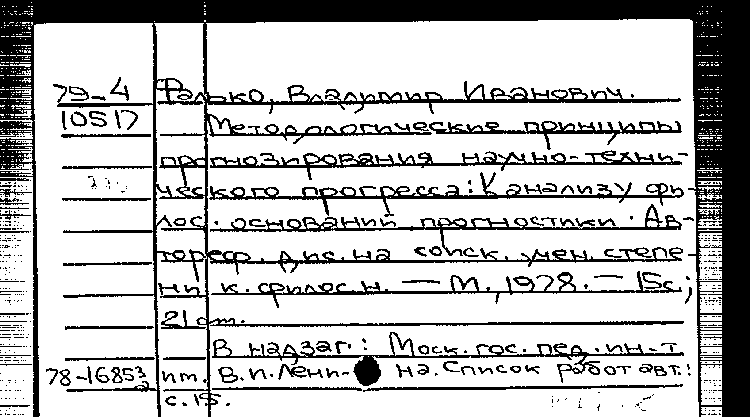 79-4 Фалько, Владимир Иванович.
10517 Методологические принципы
прогнозирования научно-техни-
ческого прогресса: К анализу фи-
лос. оснований прогностики. Ав-
тореф. дис. на соиск. учен. степе-
ни к. филос. н. — М., 1978. — 15с;
21 см.
В надзаг.: Моск. гос. пед. ин-т
78-16853 им. В.И. Лени- на. Список работ авт.:
с. 15.